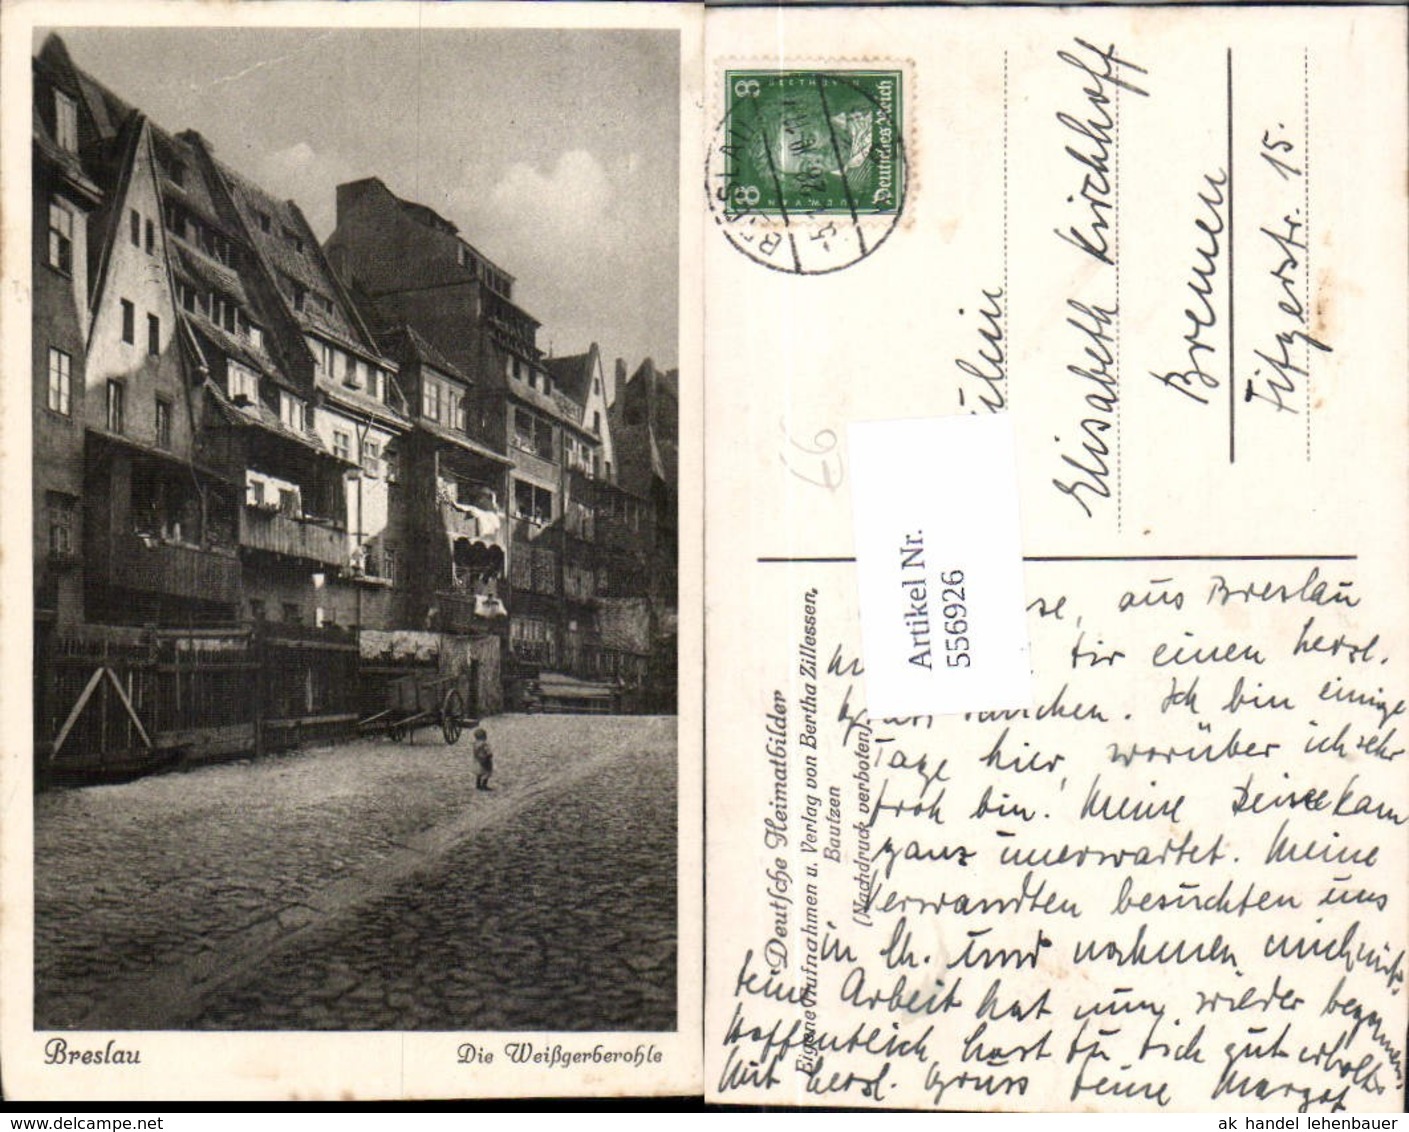 Breslau
Die Weißgerberohle
8
BEETHOVEN
Deutsches Reich
8
BRESLAU
Elisabeth Kirchhoff
Bremen
Fitgerstr. 15.
66
Artikel Nr.
556926
Deutsche Heimatbilder
Eigene Aufnahmen u. Verlag von Bertha Zillessen,
Bautzen
(Nachdruck verboten)
aus Breslau
Dir einen herzl.
Gruss Ich bin einige
Tage hier, worüber ich sehr
froh bin. Meine Reise kam
ganz unerwartet. Meine
Verwandten besuchten uns
in Ch. und nahmen mich mit.
Deine Arbeit hat nun wieder begonnen.
Hoffentlich hast Du Dich gut erholt.
Mit herzl. Gruss Deine Margot
ak handel lehenbauer